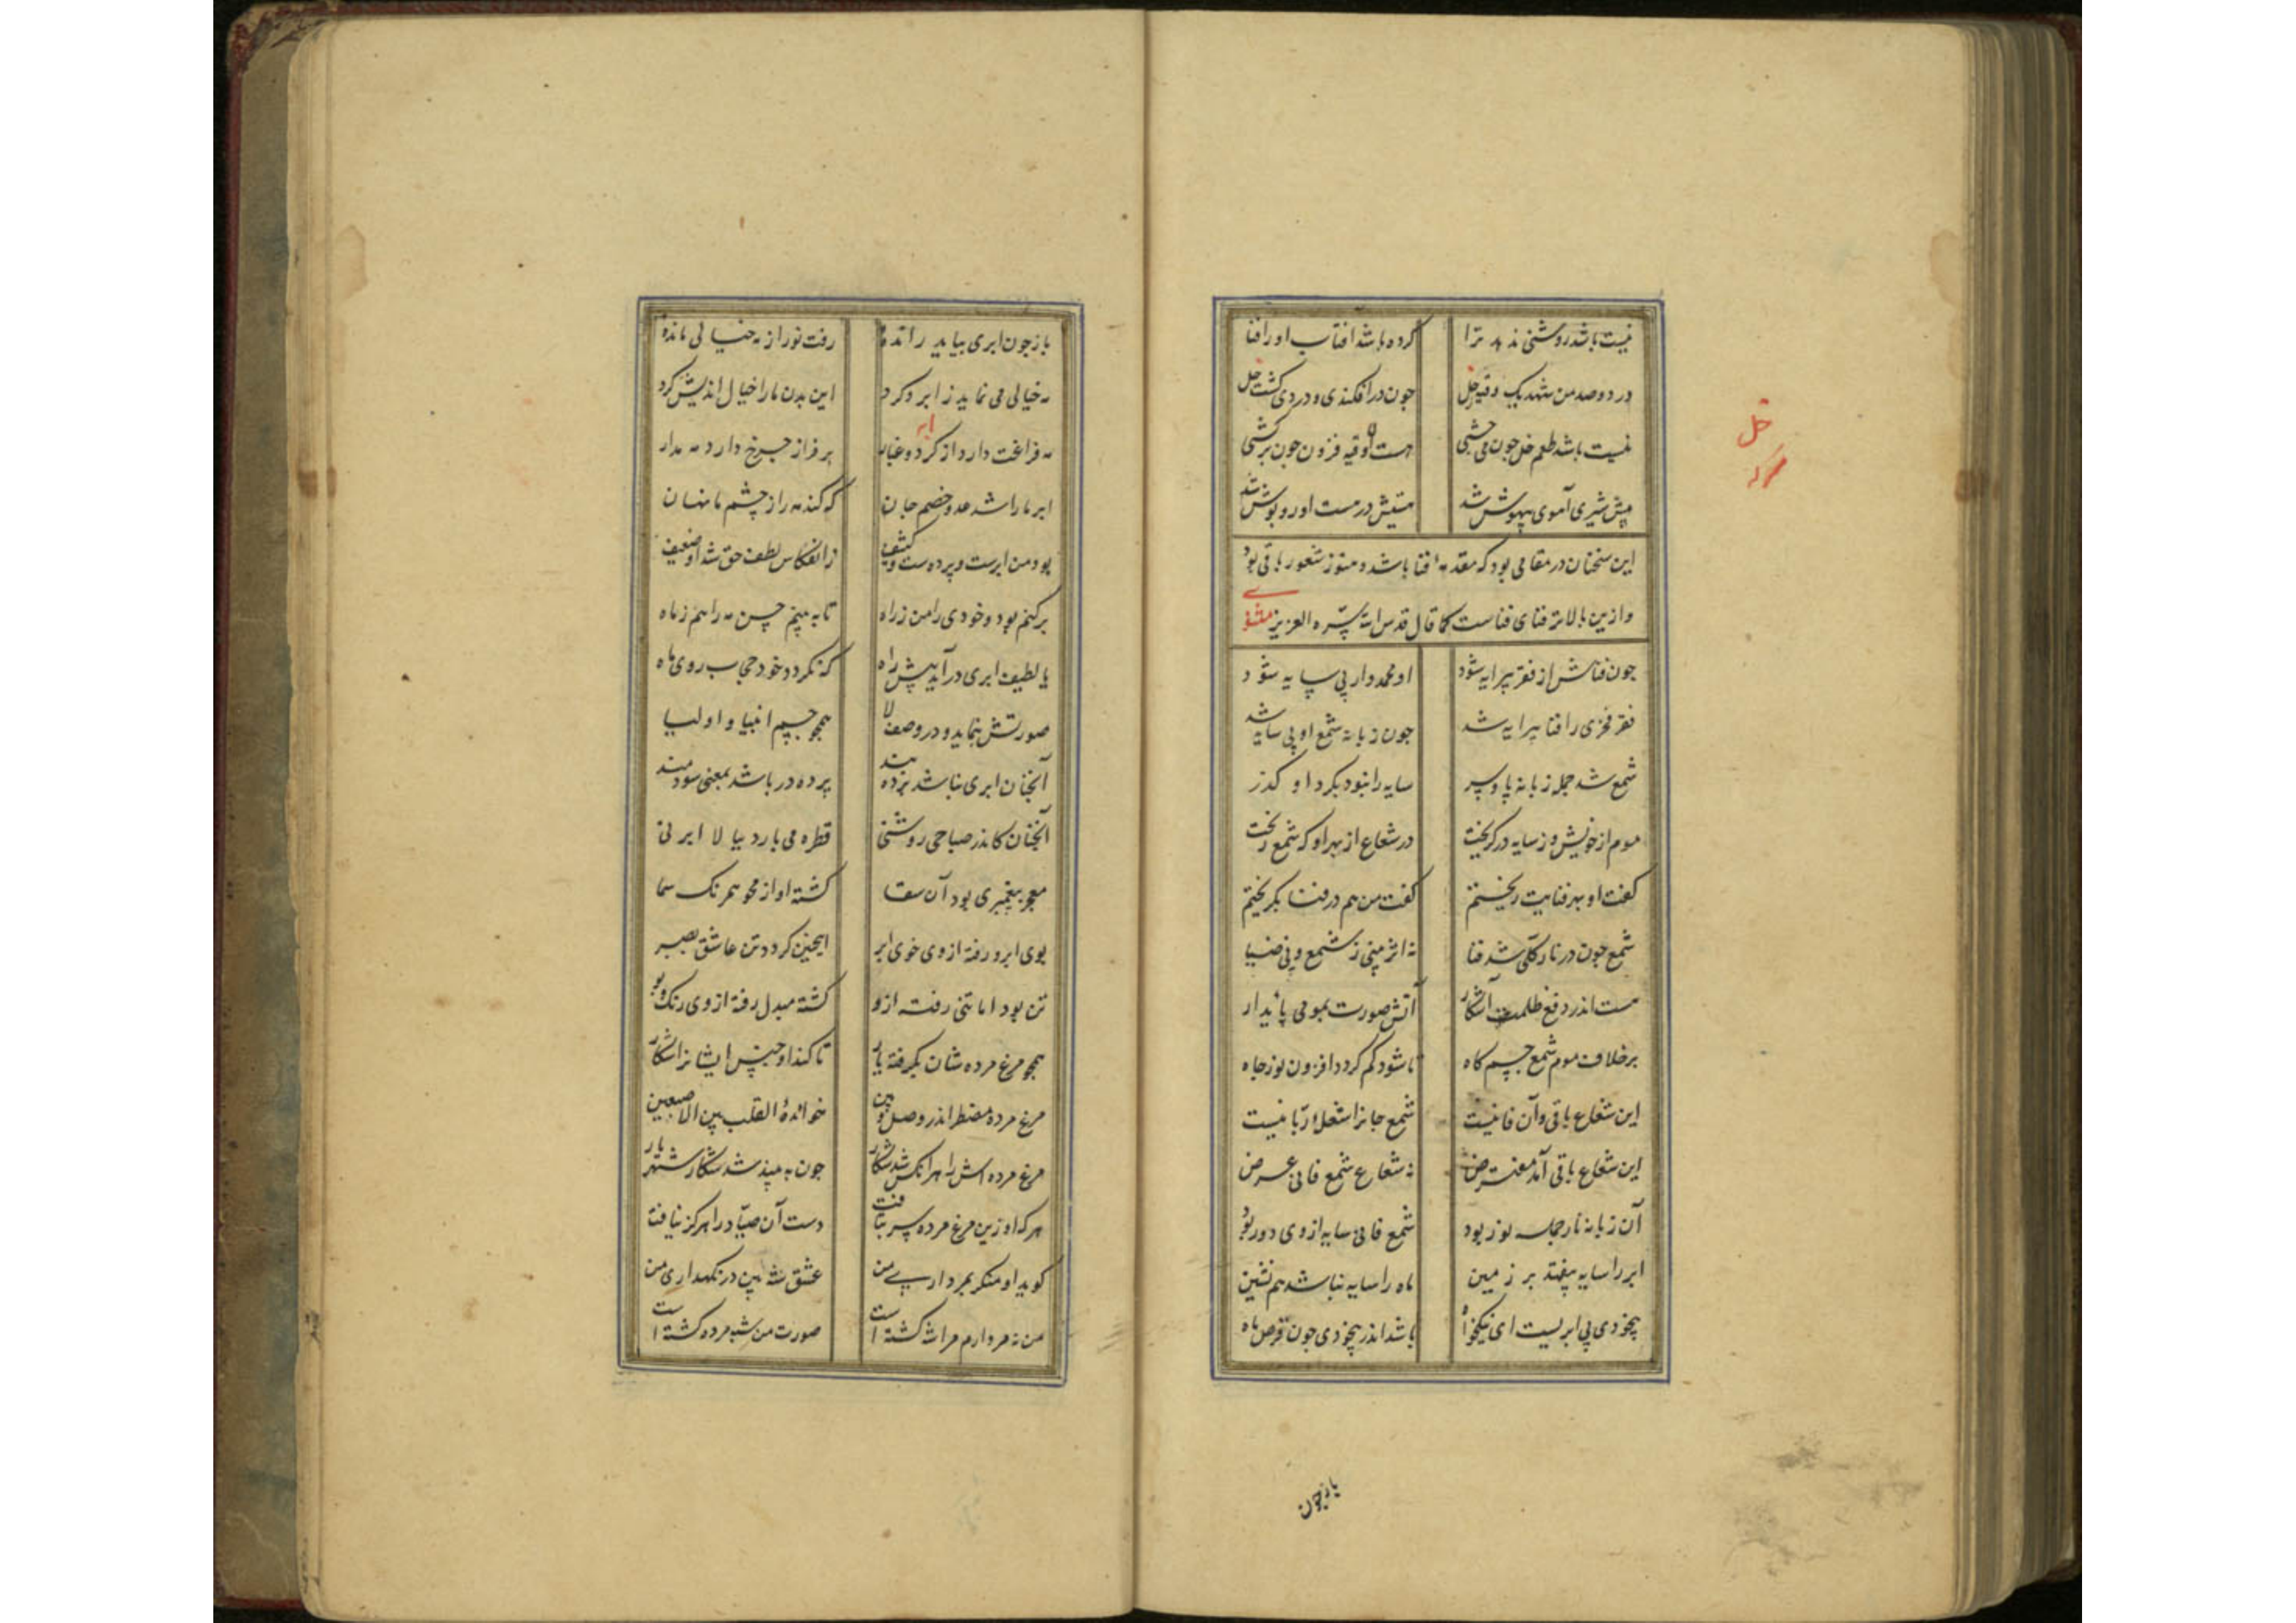 نیست باشد روشنی ندهد ترا کرده باشد افتاب او را فنا
در دو صد من شهد یک وقیه خل چون در افکندی و در وی گشت حل
نیست باشد طعم خل چون می چشی هست اوقیه فزون چون برکشی
پیش شیری آهوی بیهوش شد هستیش در هست او روپوش شد
این سخنان در مقامی بود که مقدمه فنا باشد و هنوز شعور باقی بود
و ازین بالاتر فنای فناست کما قال قدس الله سره العزیز مثنوی
چون فناش از فقر پیرایه شود او محمدوار بی سایه شود
فقر فخری را فنا پیرایه شد چون زبانه شمع او بی سایه شد
شمع شد جمله زبانه پا و سر سایه را نبود بکرد او گذر
موم از خویش و ز سایه در گریخت در شعاع از بهر او که شمع ریخت
گفت او بهر فنایت ریختم گفت من هم در فنا بگریختم
شمع چون در نار کلی شد فنا نه اثر بینی ز شمع و نی ضیا
هست اندر دفع ظلمت آشکار آتش صورت بمومی پایدار
برخلاف موم شمع جسم کاه تا شود کم گردد افزون نور جاه
این شعاع باقی و آن فانیست شمع جانرا شعله ربانیست
این شعاع باقی آمد مفترض نه شعاع شمع فانی عرض
آن زبانه نار جمله نور بود شمع فانی سایه از وی دور بود
ابر را سایه بیفتد بر زمین ماه را سایه نباشد هم نشین
بیخودی بی ابریست ای نیکخواه باشد اندر بیخودی چون قرص ماه
خل
سرکه
باز چون
باز چون ابری بیاید رانده رفت نور از مه خیالی مانده
مه خیالی می نماید ز ابر و کرد این بدن ما را خیال اندیش کرد
مه فراغت دارد از کرد و غبار بر فراز چرخ دارد مه مدار
ابر
ابر ما را شد عدو و خصم جان که کند مه را ز چشم ما نهان
بود من ابرست و پرده ست و کثیف ز انعکاس لطف حق شد او ضعیف
برکنم بود و خودی را من ز راه تا به بینم حسن مه را هم ز ماه
یا لطیف ابری در آید پیش راه که نکردد خود حجاب روی ماه
صورتش بنماید و در وصف لا همچو جسم انبیا و اولیا
آنچنان ابری نباشد پرده بند پرده در باشد بمعنی سودمند
آنچنان کاندر صباحی روشنی قطره می بارد و بالا ابر نی
معجز پیغمبری بود آن سقا گشته او از محو همرنک سما
بوی ابر و رفته از وی خوی ابر اینچنین کردد تن عاشق بصبر
تن بود اما تنی رفته ازو گشته مبدل رفته از وی رنک و بو
همچو مرغ مرده شان بکرفته یار تا کند او جنس ایشانرا شکار
مرغ مرده مضطر اندر وصل و بین خوانده القلب بین الاصبعین
مرغ مرده اش را هر آنکس شد شکار چون به بیند شد شکار شهریار
هر که او زین مرغ مرده سر بتافت دست آن صیاد را هرکز نیافت
کوید او منکر بمرداری من عشق شه بین در نکهداری من
من نه مردارم مرا شه کشته است صورت من شبه مرده کشته است